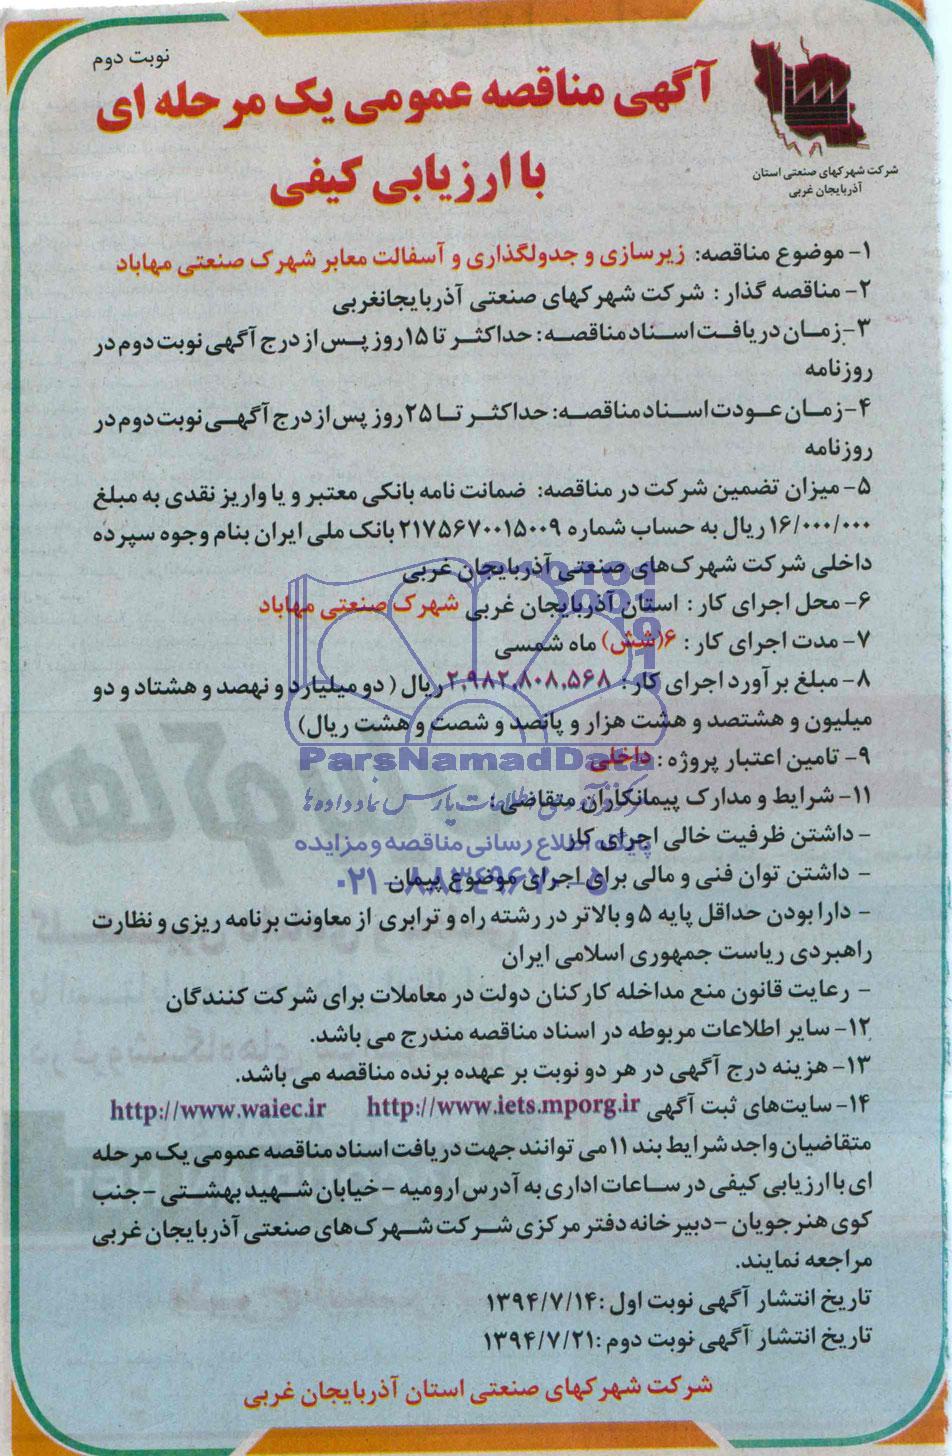 نوبت دوم
آگهی مناقصه عمومی یک مرحله ای
با ارزیابی کیفی
شرکت شهرکهای صنعتی استان
آذربایجان غربی
۱- موضوع مناقصه: زیرسازی و جدولگذاری و آسفالت معابر شهرک صنعتی مهاباد
۲- مناقصه گذار : شرکت شهرکهای صنعتی آذربایجانغربی
۳- زمان دریافت اسناد مناقصه: حداکثر تا ۱۵ روز پس از درج آگهی نوبت دوم در
روزنامه
۴- زمان عودت اسناد مناقصه: حداکثر تا ۲۵ روز پس از درج آگهی نوبت دوم در
روزنامه
۵- میزان تضمین شرکت در مناقصه: ضمانت نامه بانکی معتبر و یا واریز نقدی به مبلغ
۱۶/۰۰۰/۰۰۰ ریال به حساب شماره ۲۱۷۵۶۷۰۰۱۵۰۰۹ بانک ملی ایران بنام وجوه سپرده
داخلی شرکت شهرک‌های صنعتی آذربایجان غربی
۶- محل اجرای کار : استان آذربایجان غربی شهرک صنعتی مهاباد
۷- مدت اجرای کار : ۶(شش) ماه شمسی
۸- مبلغ برآورد اجرای کار: ۲,۹۸۲,۸۰۸,۵۶۸ ریال ( دو میلیارد و نهصد و هشتاد و دو
میلیون و هشتصد و هشت هزار و پانصد و شصت و هشت ریال)
ParsNamadData
۹- تامین اعتبار پروژه : داخلی
مرکز فرآوری اطلاعات پارس نماد داده ها
۱۱- شرایط و مدارک پیمانکاران متقاضی:
پایگاه اطلاع رسانی مناقصه و مزایده
- داشتن ظرفیت خالی اجرای کار
۰۲۱-۸۸۳۴۹۶۷۰-۵
- داشتن توان فنی و مالی برای اجرای موضوع پیمان
- دارا بودن حداقل پایه ۵ و بالاتر در رشته راه و ترابری از معاونت برنامه ریزی و نظارت
راهبردی ریاست جمهوری اسلامی ایران
- رعایت قانون منع مداخله کارکنان دولت در معاملات برای شرکت کنندگان
۱۲- سایر اطلاعات مربوطه در اسناد مناقصه مندرج می باشد.
۱۳- هزینه درج آگهی در هر دو نوبت بر عهده برنده مناقصه می باشد.
۱۴- سایت‌های ثبت آگهی http://www.iets.mporg.ir http://www.waiec.ir
متقاضیان واجد شرایط بند ۱۱ می توانند جهت دریافت اسناد مناقصه عمومی یک مرحله
ای با ارزیابی کیفی در ساعات اداری به آدرس ارومیه - خیابان شهید بهشتی - جنب
کوی هنرجویان - دبیرخانه دفتر مرکزی شرکت شهرک‌های صنعتی آذربایجان غربی
مراجعه نمایند.
تاریخ انتشار آگهی نوبت اول :۱۳۹۴/۷/۱۴
تاریخ انتشار آگهی نوبت دوم :۱۳۹۴/۷/۲۱
شرکت شهرکهای صنعتی استان آذربایجان غربی